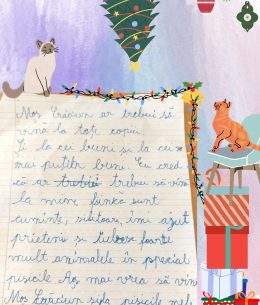 Moș Crăciun ar trebui să
vină la toți copii
Și la cei buni și la cei
mai puțin buni. Eu cred
că ar trebui trebui să vină
la mine fiincă sunt
cuminte, silitoar, îmi ajut
prietenii și iubesc foarte
mult animalele în special
pisicile Aș mai vrea să vină
Moș Crăciun și la pisicile mele